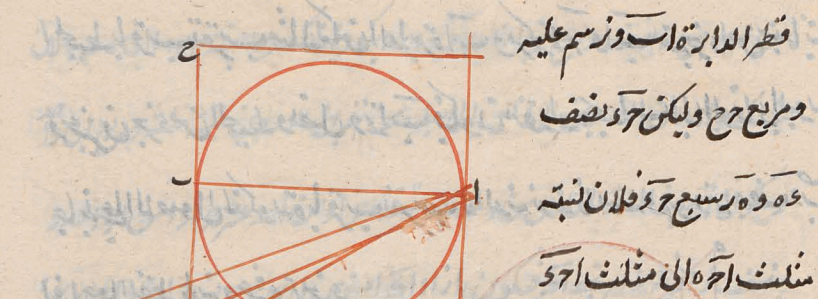 قطر الدايرة اب ونرسم عليه
ح
ومربع حح وليكن حء نصف
ب
ا
ءه وه ر سبع حء فلان نسبة
مثلث احه الى مثلث احء